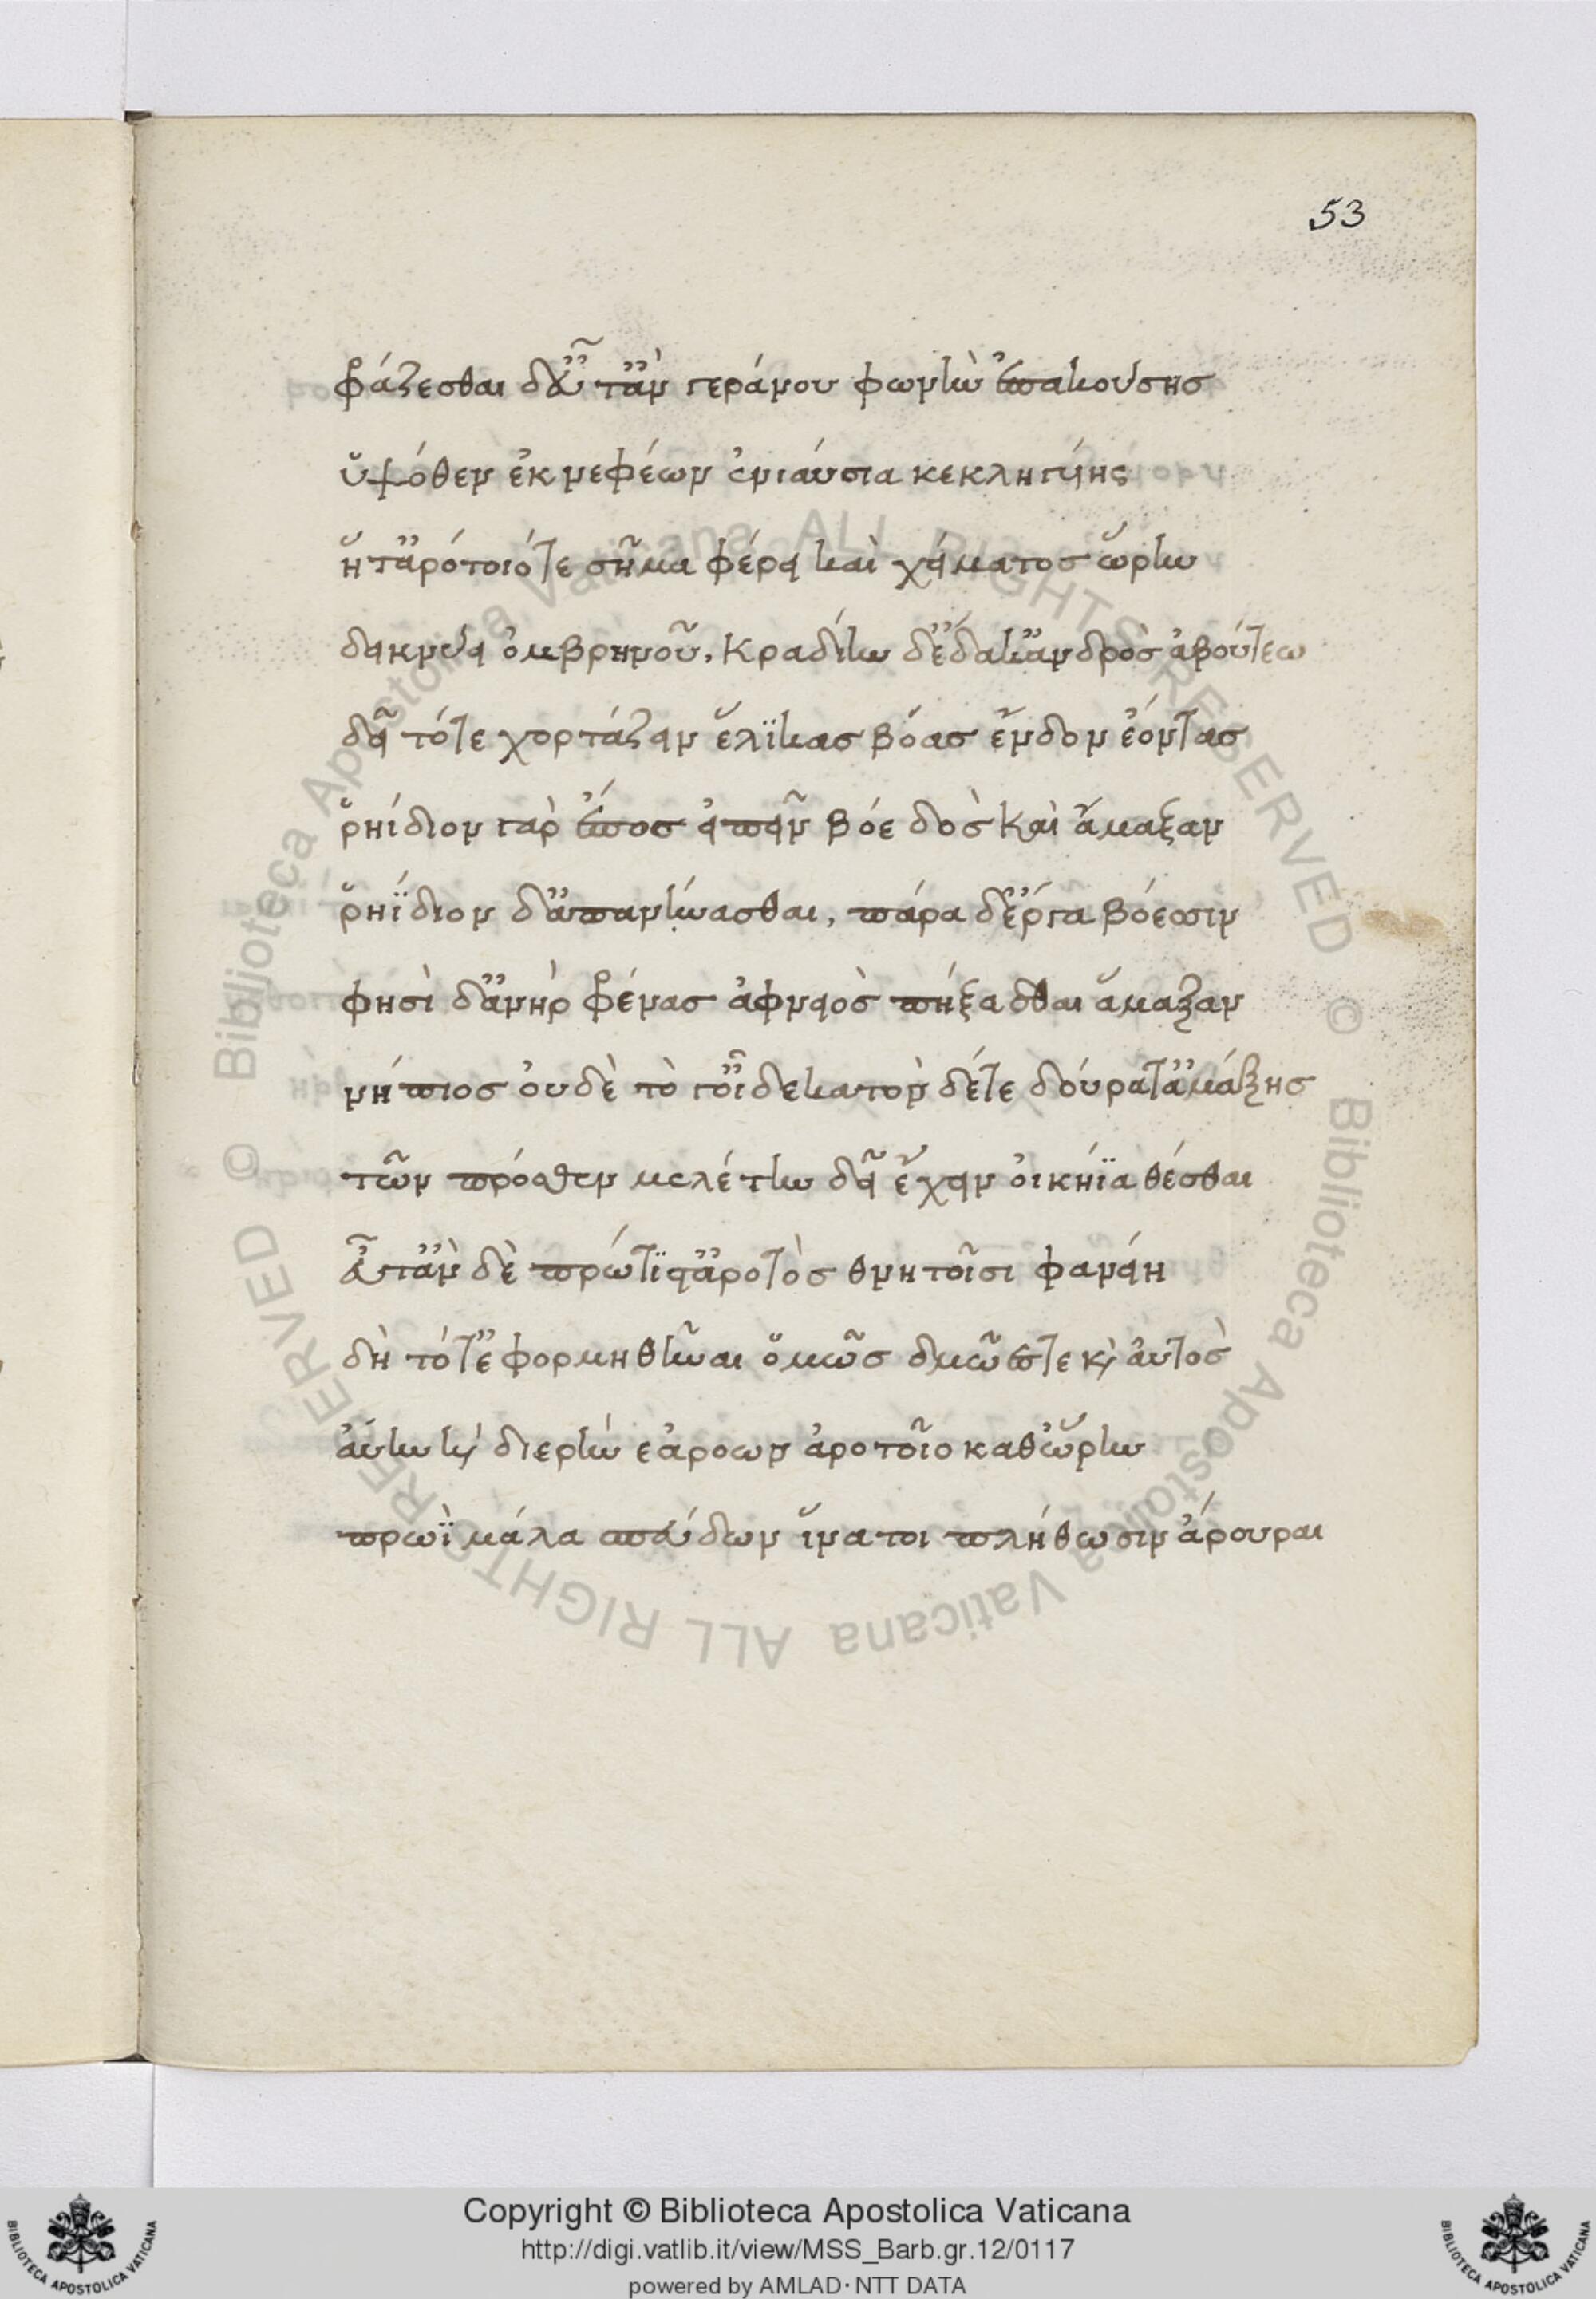 53
φράζεσθαι δ' εὖτ' ἂν γεράνου φωνὴν ἐπακούσης
ὑψόθεν ἐκ νεφέων ἐνιαύσια κεκληγυίης
ἥτ' ἀρότοιό τε σῆμα φέρει καὶ χείματος ὥρην
δεικνύει ὀμβρηνοῦ, κραδίην δ' ἔδακ' ἀνδρὸς ἀβούτεω
δεῖ τότε χορτάζειν ἕλικας βόας ἔνδον ἐόντας
ῥηίδιον γὰρ ἔπος εἰπεῖν βόε δὸς καὶ ἅμαξαν
ῥηΐδιον δ' ἀπανήνασθαι, πάρα δ' ἔργα βόεσσιν
φησὶ δ' ἀνὴρ φρένας ἀφνειὸς πήξασθαι ἅμαξαν
νήπιος οὐδὲ τὸ γ' οἶδ' ἑκατὸν δέ τε δούρατ' ἁμάξης
τῶν πρόσθεν μελέτην δεῖ ἔχειν οἰκήϊα θέσθαι
εὖτ' ἂν δὲ πρώτιστ' ἄροτὸς θνητοῖσι φανείη
δὴ τότ' ἐφορμηθῆναι ὁμῶς δμῶές τε καὶ αὐτὸς
αὔην καὶ διερὴν ἀρόων ἀροτοῖο καθ' ὥρην
πρωῒ μάλα σπεύδων ἵνα τοι πλήθωσιν ἄρουραι
© Biblioteca Apostolica Vaticana ALL RIGHTS RESERVED © Biblioteca Apostolica Vaticana ALL RIGHTS RESERVED
Copyright © Biblioteca Apostolica Vaticana
http://digi.vatlib.it/view/MSS_Barb.gr.12/0117
powered by AMLAD·NTT DATA
BIBLIOTECA APOSTOLICA VATICANA
BIBLIOTECA APOSTOLICA VATICANA